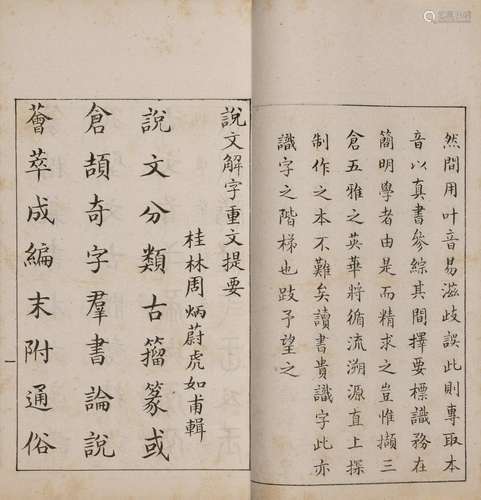 然間用叶音易滋歧誤此則專取本
音以真書參綜其間擇要標識務在
簡明學者由是而精求之豈惟擷三
倉五雅之英華將循流溯源直上探
制作之本不難矣讀書貴識字此亦
識字之階梯也跂予望之
說文解字重文提要
桂林周炳蔚虎如甫輯
說文分類古籀篆或
倉頡奇字羣書論說
薈萃成編末附通俗
一